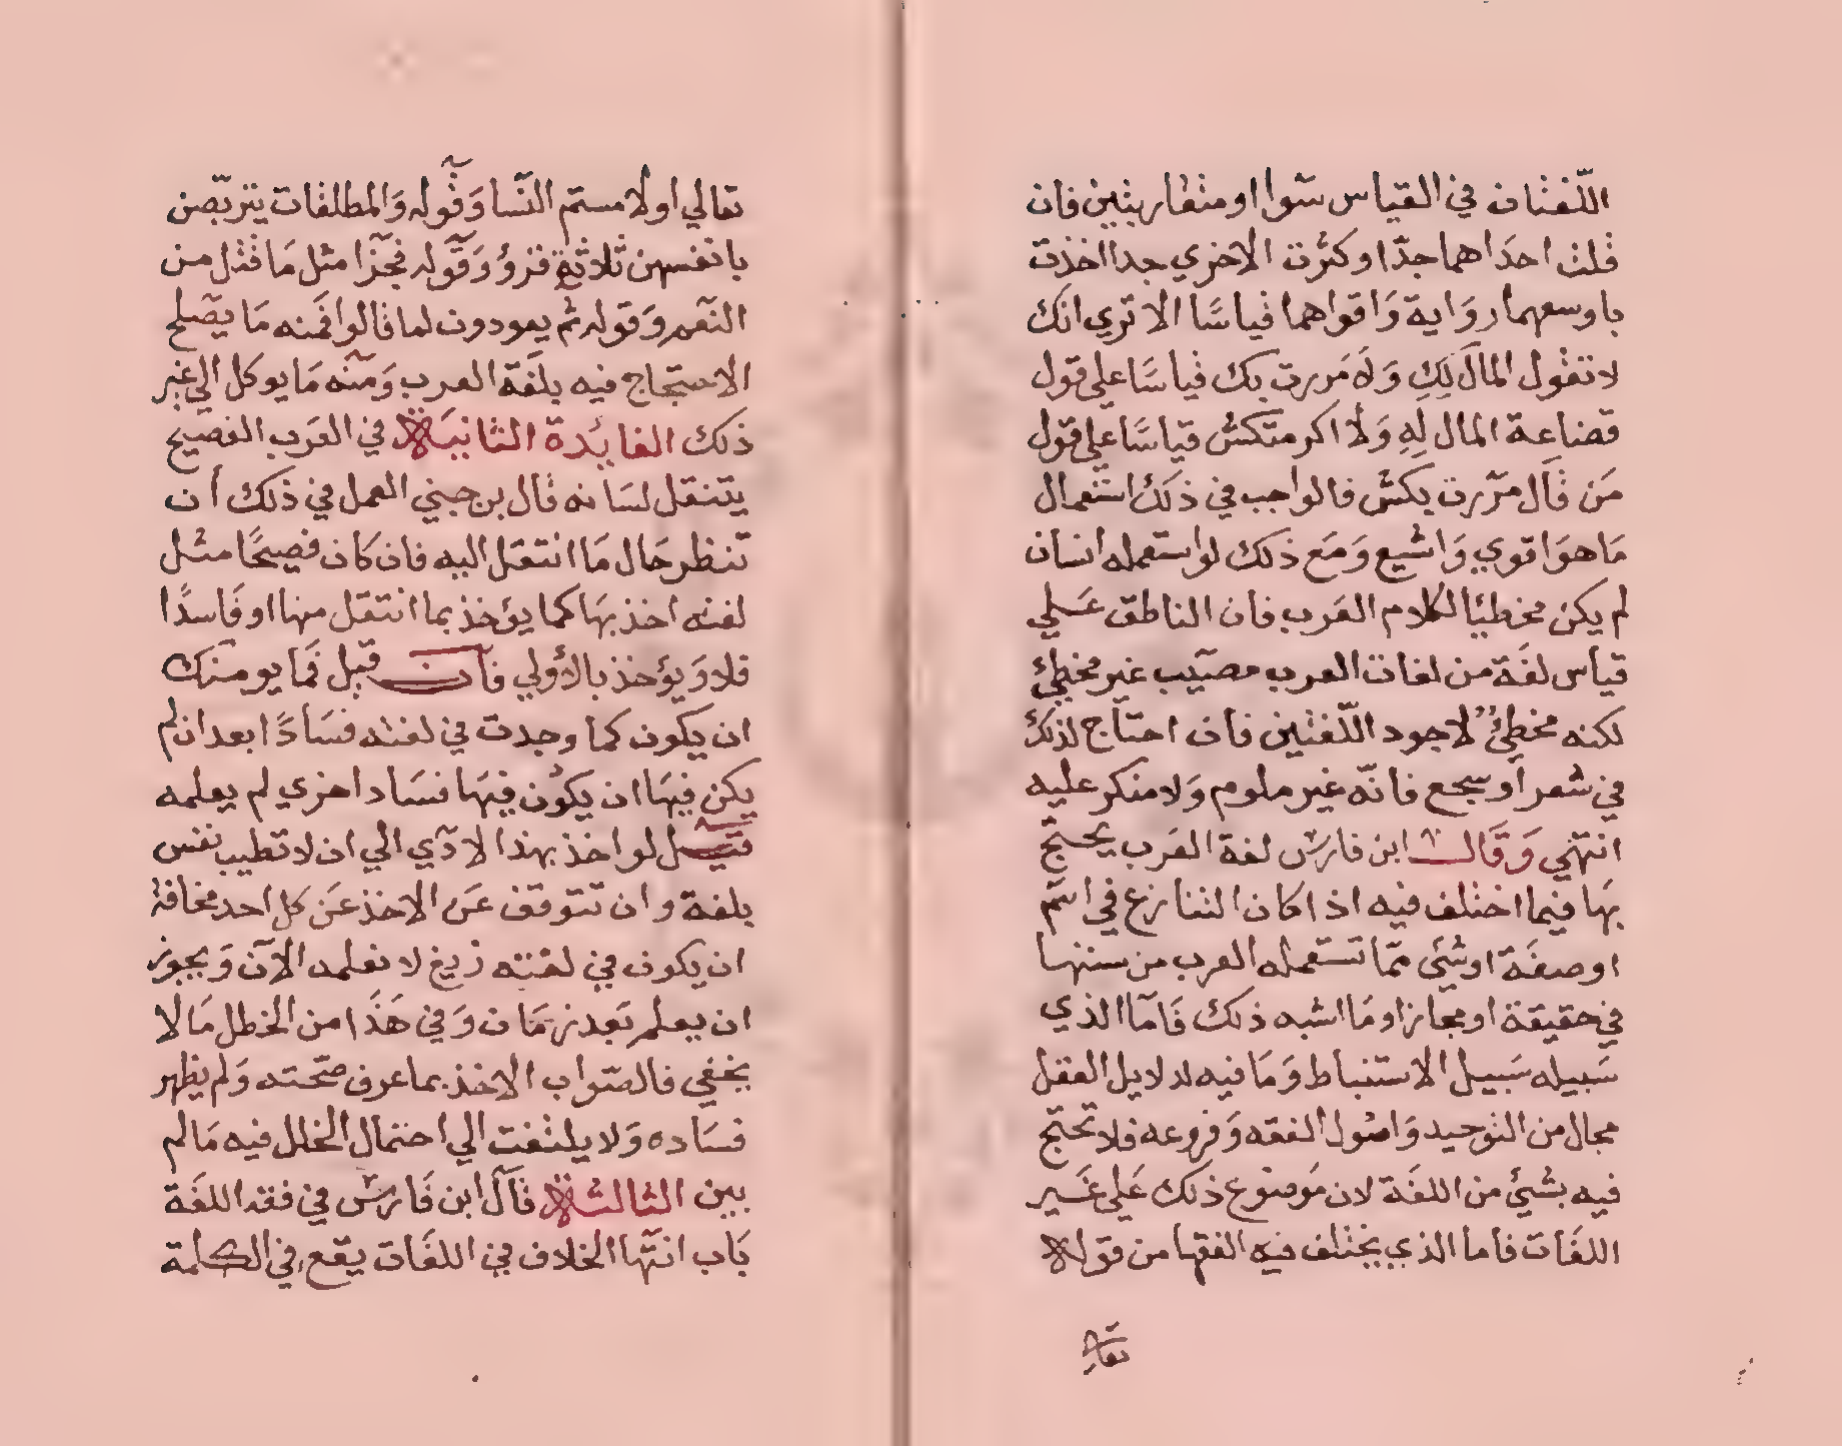 اللّغتان في القياس سَوا او متقاربتين فان
قلت احدَاهما جدّا وكثرت الاخري جدا اخذت
باوسعهما روَاية وَاقواهما قياسًا الا تري انك
لا تقول المال لِكِ وَلا مَررت بك قياسًا علي قول
قضاعة المال لِهِ وَلا اكرمتكش قياسًا علي قول
مَن قال مرّرت بكش فالواجب في ذلك استعمال
مَا هوَ اقوي وَاشيع وَمَع ذلك لو استعمله انسان
لم يكن مخطيًا لكلام العَرب فان الناطق عَلي
قياس لغَة من لغات العرب مصيب غير مخطئ
لكنه مخطئ لاجود اللّغتين فان احتاج لذلك
في شعر او سجع فانّه غير ملوم وَلا منكر عليه
انتهي وَقَال ابن فارس لغة العَرب يحتج
بهَا فيما اختلف فيه اذا كان التنازع في اسم
او صفَة او شَيْ ممّا تستعمله العرب من سننها
في حقيقة او مجاز او مَا اشبه ذلك فَامّا الذي
سَبيله سَبيل الاستنباط وَمَا فيه لدلايل العقل
مجال من التوحيد وَاصُول الفقه وَفروعه فلا تحتج
فيه بشيئ من اللغَة لان مَوضوع ذلك عَلي غَير
اللغَات فاما الذي يختلف فيه الفقها من قوله
تعالي
تعالي او لامستم النّسا وَقوله وَالمطلقات يتربّصن
بانفسهن ثلاثة قروُ وَقوله فجزا مثل مَا قتل من
النّعم وَقوله ثم يعودون لما قالوا فمنه مَا يصلح
الاحتجاج فيه بلغَة العرب وَمنه مَا يوكل الي غير
ذلك الفايدة الثانية في العَرب الفصيح
ينتقل لسَانه قال بن جني العمل في ذلك أن
تنظر حَال مَا انتقل اليه فان كان فصيحًا مثل
لغته اخذ بهَا كما يؤخذ بما انتقل منها او فَاسدًا
فلا وَيؤخذ بالأولي فان قيل فما يومنك
ان يكون كما وجدت في لغته فسَادًا بعد ان لم
يكن فيهَا ان يكون فيهَا فسَاد اخري لم يعلمه
قيل لو اخذ بهذا لادّي الي ان لا تطيب نفس
بلغة وان تتوقف عَن الاخذ عَن كل احد مخافة
ان يكون في لغته زيغ لا نعلمه الآن وَيجوز
ان يعلم بَعد زمَان وَفي هَذَا من الخطل مَا لا
يخفي فالصّواب الاخذ بما عرف صحّته وَلم يظهر
فسَاده وَلا يلتفت الي احتمال الخلل فيه مَا لم
يبين الثالثة قَال ابن فَارس في فقه اللغَة
بَاب انتها الخلاف في اللغَات يقع في الكلمة